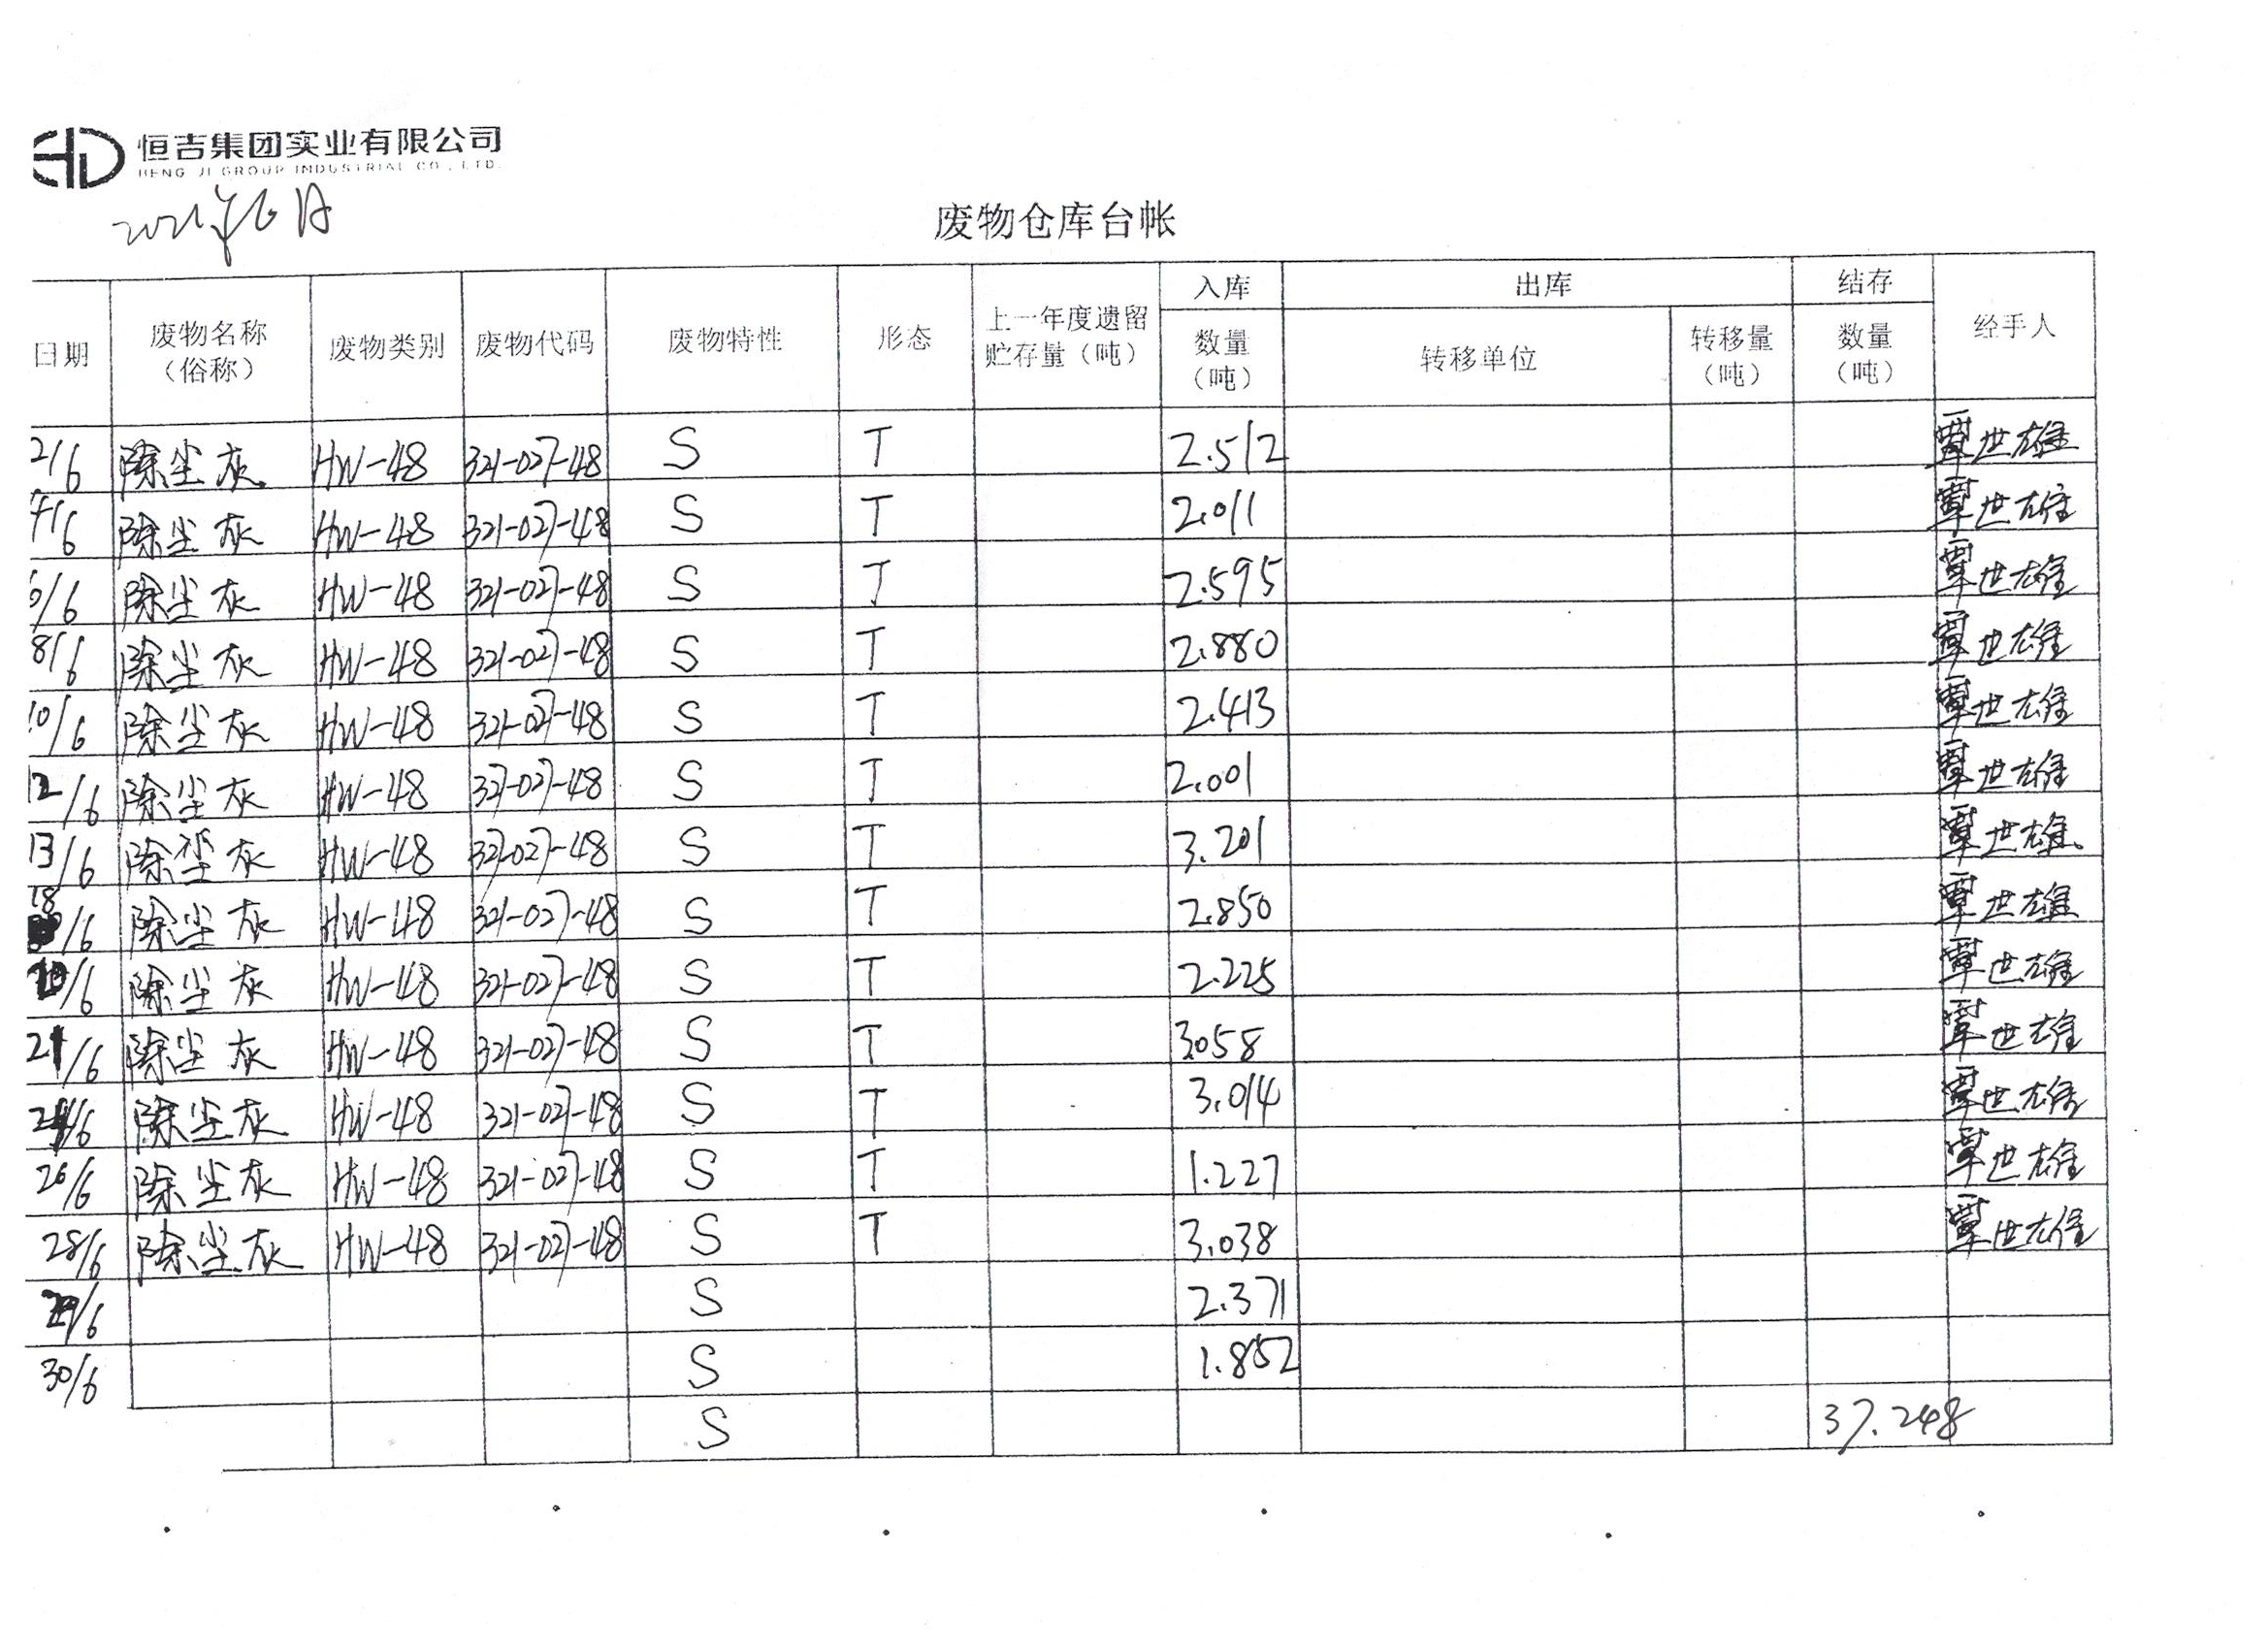 恒吉集团实业有限公司
HENG JI GROUP INDUSTRIAL CO., LTD.
2021年6月
废物仓库台帐
日期 废物名称（俗称） 废物类别 废物代码 废物特性 形态 上一年度遗留贮存量（吨） 入库 数量（吨） 出库 转移单位 转移量（吨） 结存 数量（吨） 经手人
2/6 除尘灰 HW-48 321-027-48 S T 2.512 覃世雄
4/6 除尘灰 HW-48 321-027-48 S T 2.011 覃世雄
6/6 除尘灰 HW-48 321-027-48 S T 2.595 覃世雄
8/6 除尘灰 HW-48 321-027-48 S T 2.880 覃世雄
10/6 除尘灰 HW-48 321-027-48 S T 2.413 覃世雄
12/6 除尘灰 HW-48 321-027-48 S T 2.001 覃世雄
13/6 除尘灰 HW-48 321-027-48 S T 3.201 覃世雄
18/6 除尘灰 HW-48 321-027-48 S T 2.850 覃世雄
20/6 除尘灰 HW-48 321-027-48 S T 2.225 覃世雄
21/6 除尘灰 HW-48 321-027-48 S T 3.058 覃世雄
24/6 除尘灰 HW-48 321-027-48 S T 3.014 覃世雄
26/6 除尘灰 HW-48 321-027-48 S T 1.227 覃世雄
28/6 除尘灰 HW-48 321-027-48 S T 3.038 覃世雄
29/6 S 2.371
30/6 S 1.852
S 37.248